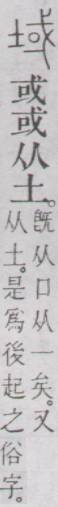 域
或或从土。
旣从口从一矣。又
从土。是爲後起之俗字。